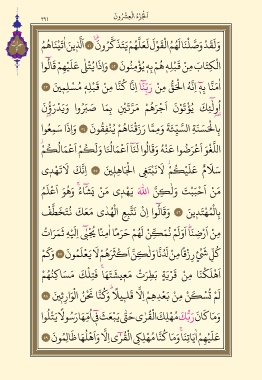 اَلْجُزْءُ الْعِشْرُونَ
٣٩١
وَلَقَدْ وَصَّلْنَا لَهُمُ الْقَوْلَ لَعَلَّهُمْ يَتَذَكَّرُونَ اَلَّذِينَ اٰتَيْنَاهُمُ
الْكِتَابَ مِنْ قَبْلِهِ هُمْ بِهِ يُؤْمِنُونَ وَاِذَا يُتْلٰى عَلَيْهِمْ قَالُٓوا
اٰمَنَّا بِهِٓ اِنَّهُ الْحَقُّ مِنْ رَبِّنَٓا اِنَّا كُنَّا مِنْ قَبْلِهِ مُسْلِمِينَ
اُولٰٓئِكَ يُؤْتَوْنَ اَجْرَهُمْ مَرَّتَيْنِ بِمَا صَبَرُوا وَيَدْرَؤُنَ
بِالْحَسَنَةِ السَّيِّئَةَ وَمِمَّا رَزَقْنَاهُمْ يُنْفِقُونَ وَاِذَا سَمِعُوا
اللَّغْوَ اَعْرَضُوا عَنْهُ وَقَالُوا لَنَٓا اَعْمَالُنَا وَلَكُمْ اَعْمَالُكُمْ
سَلَامٌ عَلَيْكُمْ لَا نَبْتَغِي الْجَاهِلِينَ اِنَّكَ لَا تَهْدِي
مَنْ اَحْبَبْتَ وَلٰكِنَّ اللّٰهَ يَهْدِي مَنْ يَشَٓاءُ وَهُوَ اَعْلَمُ
بِالْمُهْتَدِينَ وَقَالُٓوا اِنْ نَتَّبِعِ الْهُدٰى مَعَكَ نُتَخَطَّفْ
مِنْ اَرْضِنَا اَوَلَمْ نُمَكِّنْ لَهُمْ حَرَمًا اٰمِنًا يُجْبٰٓى اِلَيْهِ ثَمَرَاتُ
كُلِّ شَيْءٍ رِزْقًا مِنْ لَدُنَّا وَلٰكِنَّ اَكْثَرَهُمْ لَا يَعْلَمُونَ وَكَمْ
اَهْلَكْنَا مِنْ قَرْيَةٍ بَطِرَتْ مَعِيشَتَهَا فَتِلْكَ مَسَاكِنُهُمْ
لَمْ تُسْكَنْ مِنْ بَعْدِهِمْ اِلَّا قَلِيلًا وَكُنَّا نَحْنُ الْوَارِثِينَ
وَمَا كَانَ رَبُّكَ مُهْلِكَ الْقُرٰى حَتّٰى يَبْعَثَ فِٓي اُمِّهَا رَسُولًا يَتْلُوا
عَلَيْهِمْ اٰيَاتِنَا وَمَا كُنَّا مُهْلِكِي الْقُرٰٓى اِلَّا وَاَهْلُهَا ظَالِمُونَ